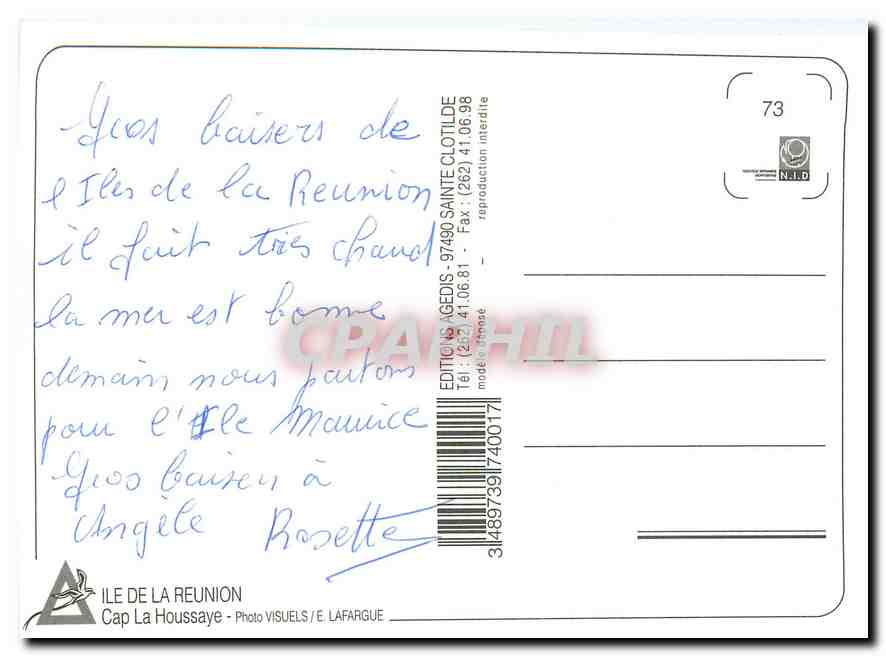 Gros baisers de
l'Iles de la Reunion
il fait très chaud
la mer est bonne
demain nous partons
pour l'Ile Maurice
Gros baisers à
Angèle Rosette
ILE DE LA REUNION
Cap La Houssaye - Photo VISUELS / E. LAFARGUE
EDITIONS AGEDIS - 97490 SAINTE CLOTILDE
Tél : (262) 41.06.81 - Fax : (262) 41.06.98
modèle déposé - reproduction interdite
3 489739 740017
73
N.I.D
CPARPHIL